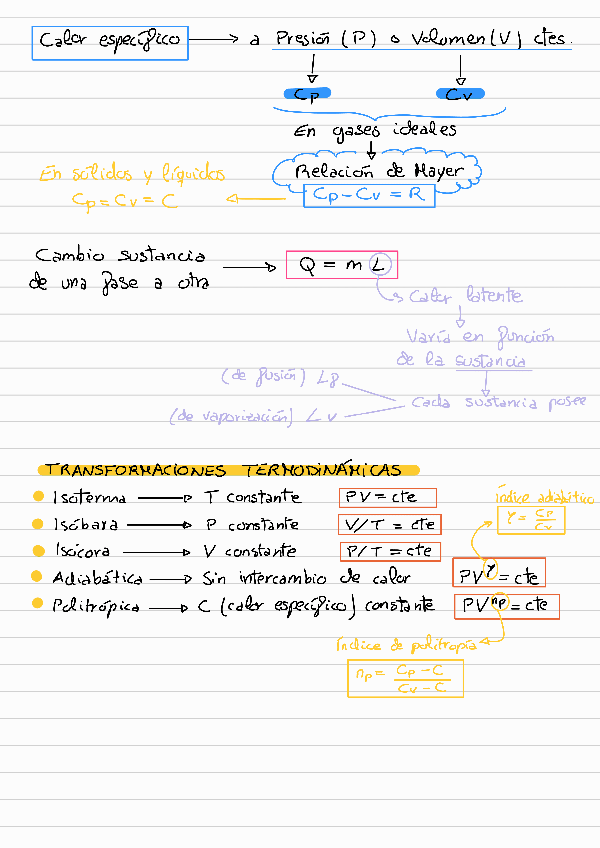 Calor específico → a Presión (P) o Volumen (V) ctes.
Cp Cv
En gases ideales
Relación de Mayer
Cp - Cv = R
En sólidos y líquidos
Cp = Cv = C
Cambio sustancia
de una fase a otra → Q = m L
Calor latente
Varía en función
de la sustancia
Cada sustancia posee
(de fusión) Lf
(de vaporización) Lv
TRANSFORMACIONES TERMODINÁMICAS
Isoterma → T constante PV = cte
Isóbara → P constante V/T = cte
Isócora → V constante P/T = cte
Adiabática → Sin intercambio de calor PV^γ = cte
índice adiabático
γ = Cp/Cv
Politrópica → C (calor específico) constante PV^np = cte
Índice de politropía
np = Cp - C / Cv - C